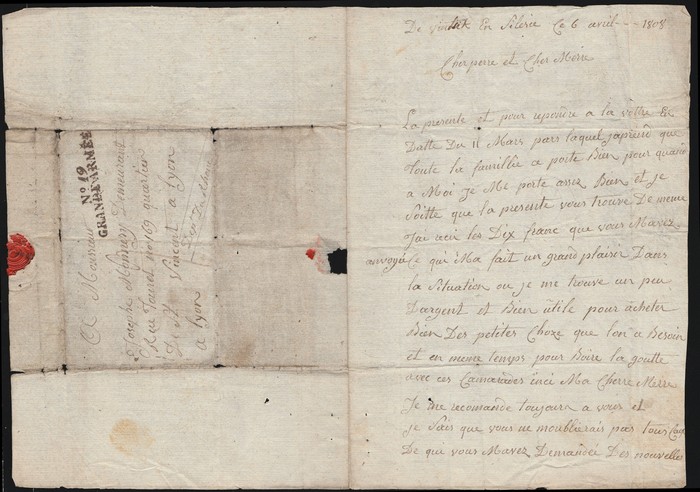 De En Silesie Ce 6 avril - - - 1808
Cher perre et Cher Mere
La presente et pour repondre a la vôtre En
Datte Du 11 Mars pars laquel japrend que
Toute la famillie a porte Bien pour quand
a Moi je Me porte assez Bien et je
Soitte que la presente vous trouve De meme
J'ai recu les Dix franc que vous Mavez
envoyé Ce qui Ma fait un grand plaisir Dans
la Situation ou je me trouve un peu
D'argent et Bien utile pour acheter
Bien Des petites Choze que lon a Besoin
et en meme temps pour Boire la goutte
avec ces Camarades Ma Cherre Merre
Je me recomande toujours a vous et
je Sais que vous ne moublierais pas tous
De que vous Mavez Demandée Des nouvelles
No. 19
GRANDE ARMÉE
A Monsieur
Josephe Demeurant
Rue No 169 quartier
De St Vincent a Lyon
Dep Du Rhone
a Lyon